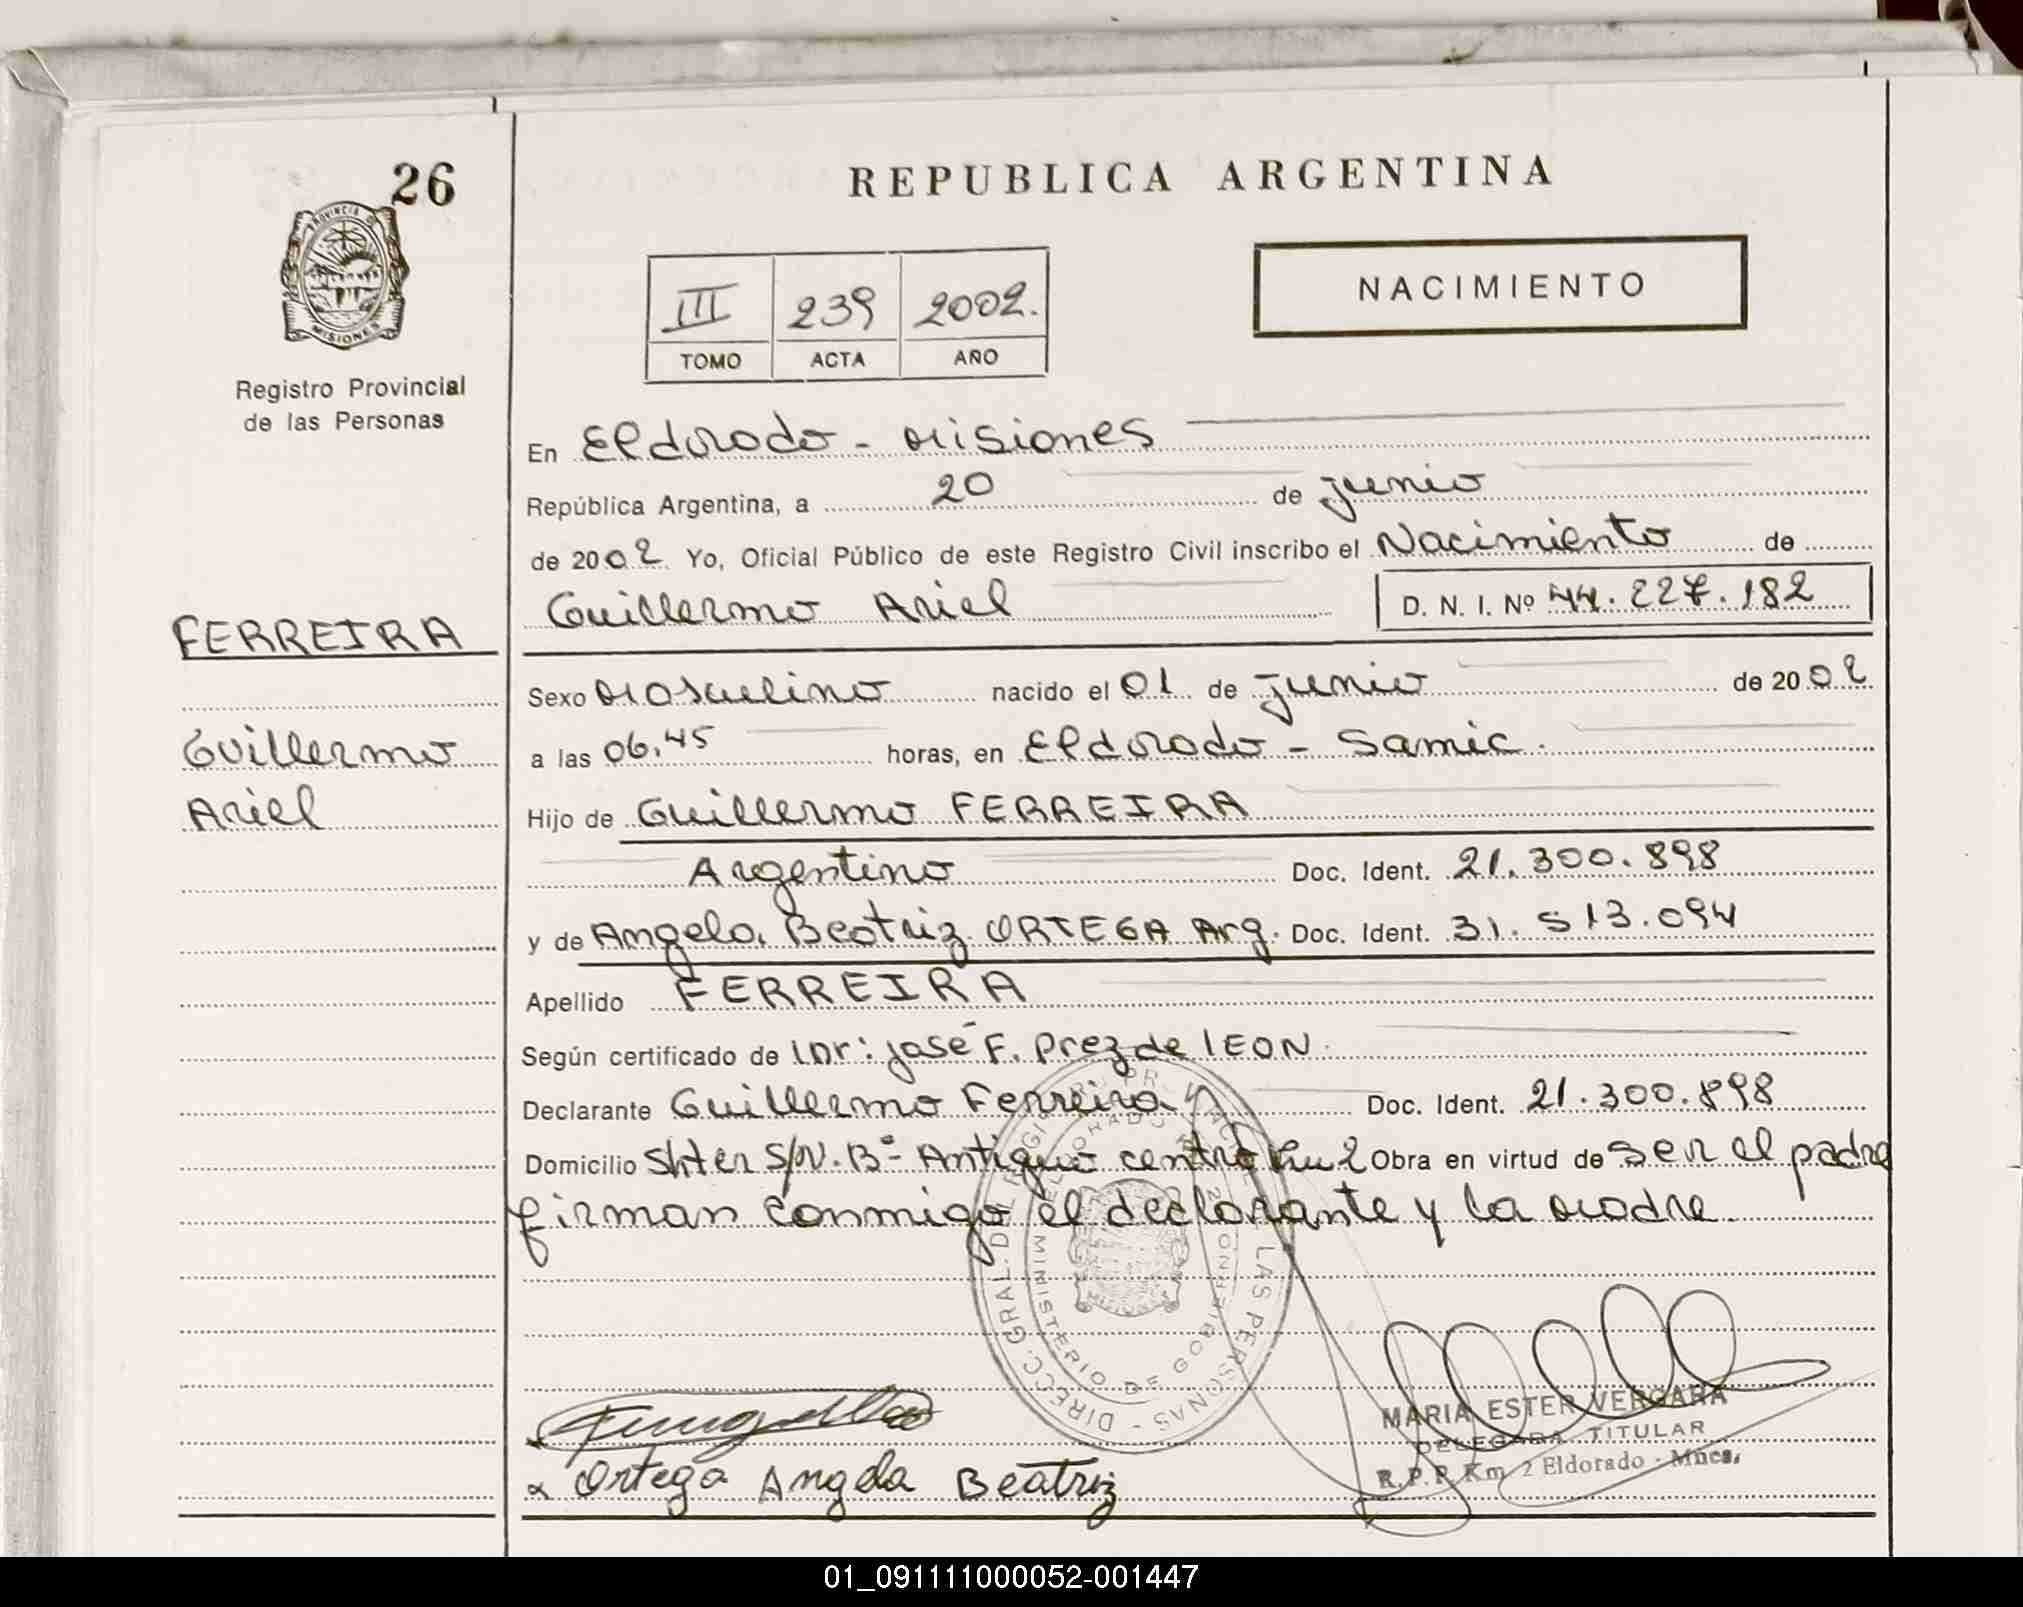 26
PROVINCIA D
MISIONES
Registro Provincial
de las Personas
FERREIRA
Guillermo
Ariel
REPUBLICA ARGENTINA
III 239 2002.
TOMO ACTA AÑO
NACIMIENTO
En Eldorado - Misiones
República Argentina, a 20 de junio
de 2002 Yo, Oficial Público de este Registro Civil inscribo el Nacimiento de
Guillermo Ariel D. N. I. Nº 44.227.182
Sexo Masculino nacido el 01 de junio de 2002
a las 06.45 horas, en Eldorado - Samic.
Hijo de Guillermo FERREIRA
Argentino Doc. Ident. 21.300.898
y de Angela Beatriz ORTEGA Arg. Doc. Ident. 31.513.094
Apellido FERREIRA
Según certificado de Dr: José F. Prez de lEON.
Declarante Guillermo Ferreira Doc. Ident. 21.300.898
Domicilio S/N. Bº Antiguo centro 2 Obra en virtud de ser el padre
firman conmigo el declarante y la madre
DIRECC. GRAL. DEL REGISTRO PROVINCIAL DE LAS PERSONAS -
MINISTERIO DE GOBIERNO
MISIONES
MARIA ESTER VERGARA
DELEGADA TITULAR
R.P.P. Km 2 Eldorado - Mnes.
Ortega Angela Beatriz
01_091111000052-001447